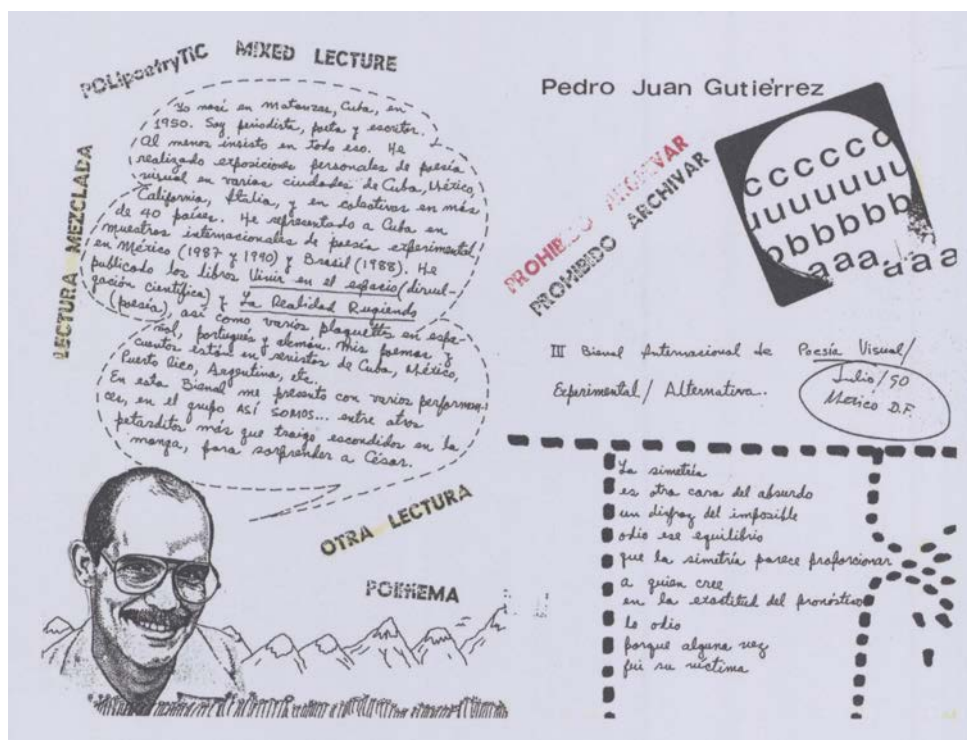 POLipoetryTiC MIXED LECTURE
LECTURA MEZCLADA
Yo nací en Matanzas, Cuba, en
1950. Soy periodista, poeta y escritor.
Al menos insisto en todo eso. He
realizado exposiciones personales de poesía
visual en varias ciudades de Cuba, México,
California, Italia, y en colectivas en más
de 40 países. He representado a Cuba en
muestras internacionales de poesía experimental,
en México (1987 y 1990) y Brasil (1988). He
publicado los libros Vivir en el espacio (divul-
gación científica) y La Realidad Rugiendo
(poesía), así como varios plaquettes en espa-
ñol, portugués y alemán. Mis poemas y
cuentos están en revistas de Cuba, México,
Puerto Rico, Argentina, etc.
En esta Bienal me presento con varios performan-
ces, en el grupo ASÍ SOMOS... entre otros
petarditos más que traigo escondidos en la
manga, para sorprender a César.
OTRA LECTURA
Pedro Juan Gutiérrez
PROHIBIDO ARCHIVAR
PROHIBIDO ARCHIVAR
cccccc
uuuuuuu
bbbbbb
aaa.aaa
III Bienal Internacional de Poesía Visual/
Experimental/ Alternativa.
Julio/90
México D.F.
La simetría
es otra cara del absurdo
un disfraz del imposible
odio ese equilibrio
que la simetría parece proporcionar
a quien cree
en la exactitud del pronóstico
lo odio
porque alguna vez
fui su víctima